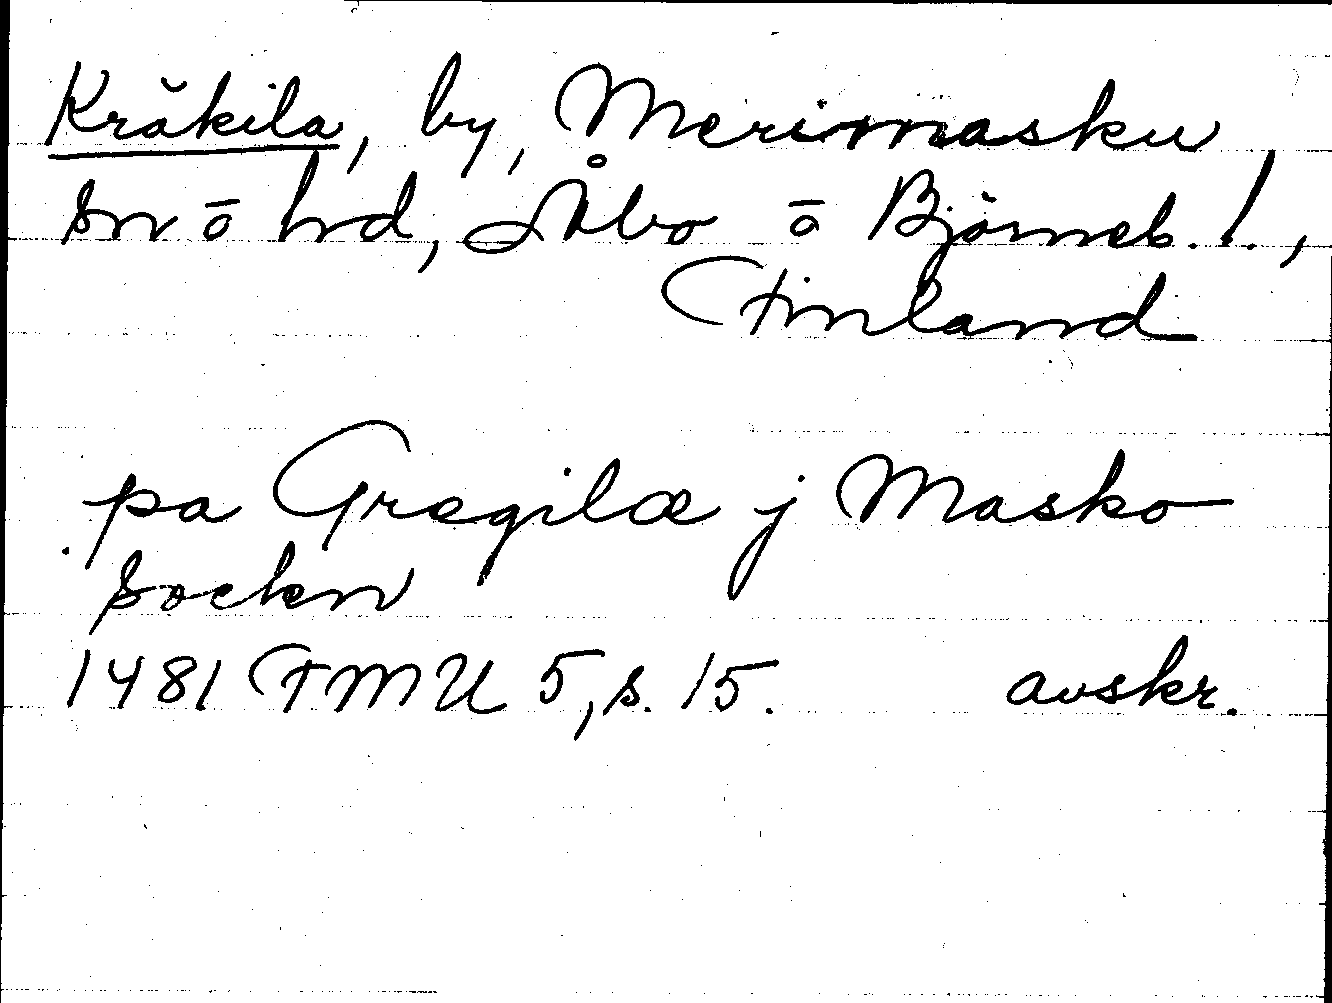 Kräkila, by, Merimasku
sn o hd, Åbo o Björneb. l.,
Finland
pa Grægilæ j Masko
sockn
1481 FMU 5, s. 15. avskr.